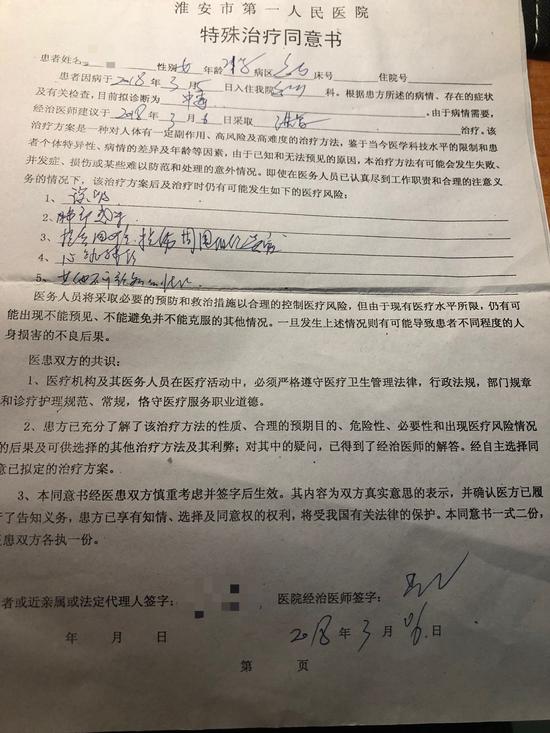 淮安市第一人民医院
特殊治疗同意书
患者姓名 性别 女 年龄 病区 床号 住院号
患者因病于 2018 年 3 月 日入住我院 科。根据患方所述的病情、存在的症状
及有关检查,目前拟诊断为 中毒 。由于病情需要,
经治医师建议于 2018 年 3 月 6 日采取 洗胃 治疗。该
治疗方案是一种对人体有一定副作用、高风险及高难度的治疗方法,鉴于当今医学科技水平的限制和患
者个体特异性、病情的差异及年龄等因素,由于已知和无法预见的原因,本治疗方法有可能会发生失败、
并发症、损伤或某些难以防范和处理的意外情况。即使在医务人员已认真尽到工作职责和合理的注意义
务的情况下,该治疗方案后及治疗时仍有可能发生如下的医疗风险:
1、误吸
2、
3、
4、心
5、其他不可预知的
医务人员将采取必要的预防和救治措施以合理的控制医疗风险,但由于现有医疗水平所限,仍有可
能出现不能预见、不能避免并不能克服的其他情况。一旦发生上述情况则有可能导致患者不同程度的人
身损害的不良后果。
医患双方的共识:
1、医疗机构及其医务人员在医疗活动中,必须严格遵守医疗卫生管理法律,行政法规,部门规章
和诊疗护理规范、常规,恪守医疗服务职业道德。
2、患方已充分了解了该治疗方法的性质、合理的预期目的、危险性、必要性和出现医疗风险情况
的后果及可供选择的其他治疗方法及其利弊;对其中的疑问,已得到了经治医师的解答。经自主选择同
意已拟定的治疗方案。
3、本同意书经医患双方慎重考虑并签字后生效。其内容为双方真实意思的表示,并确认医方已履
行了告知义务,患方已享有知情、选择及同意权的权利,将受我国有关法律的保护。本同意书一式二份,
医患双方各执一份。
者或近亲属或法定代理人签字: 医院经治医师签字:
年 月 日 2018 年 3 月 06 日
第 页